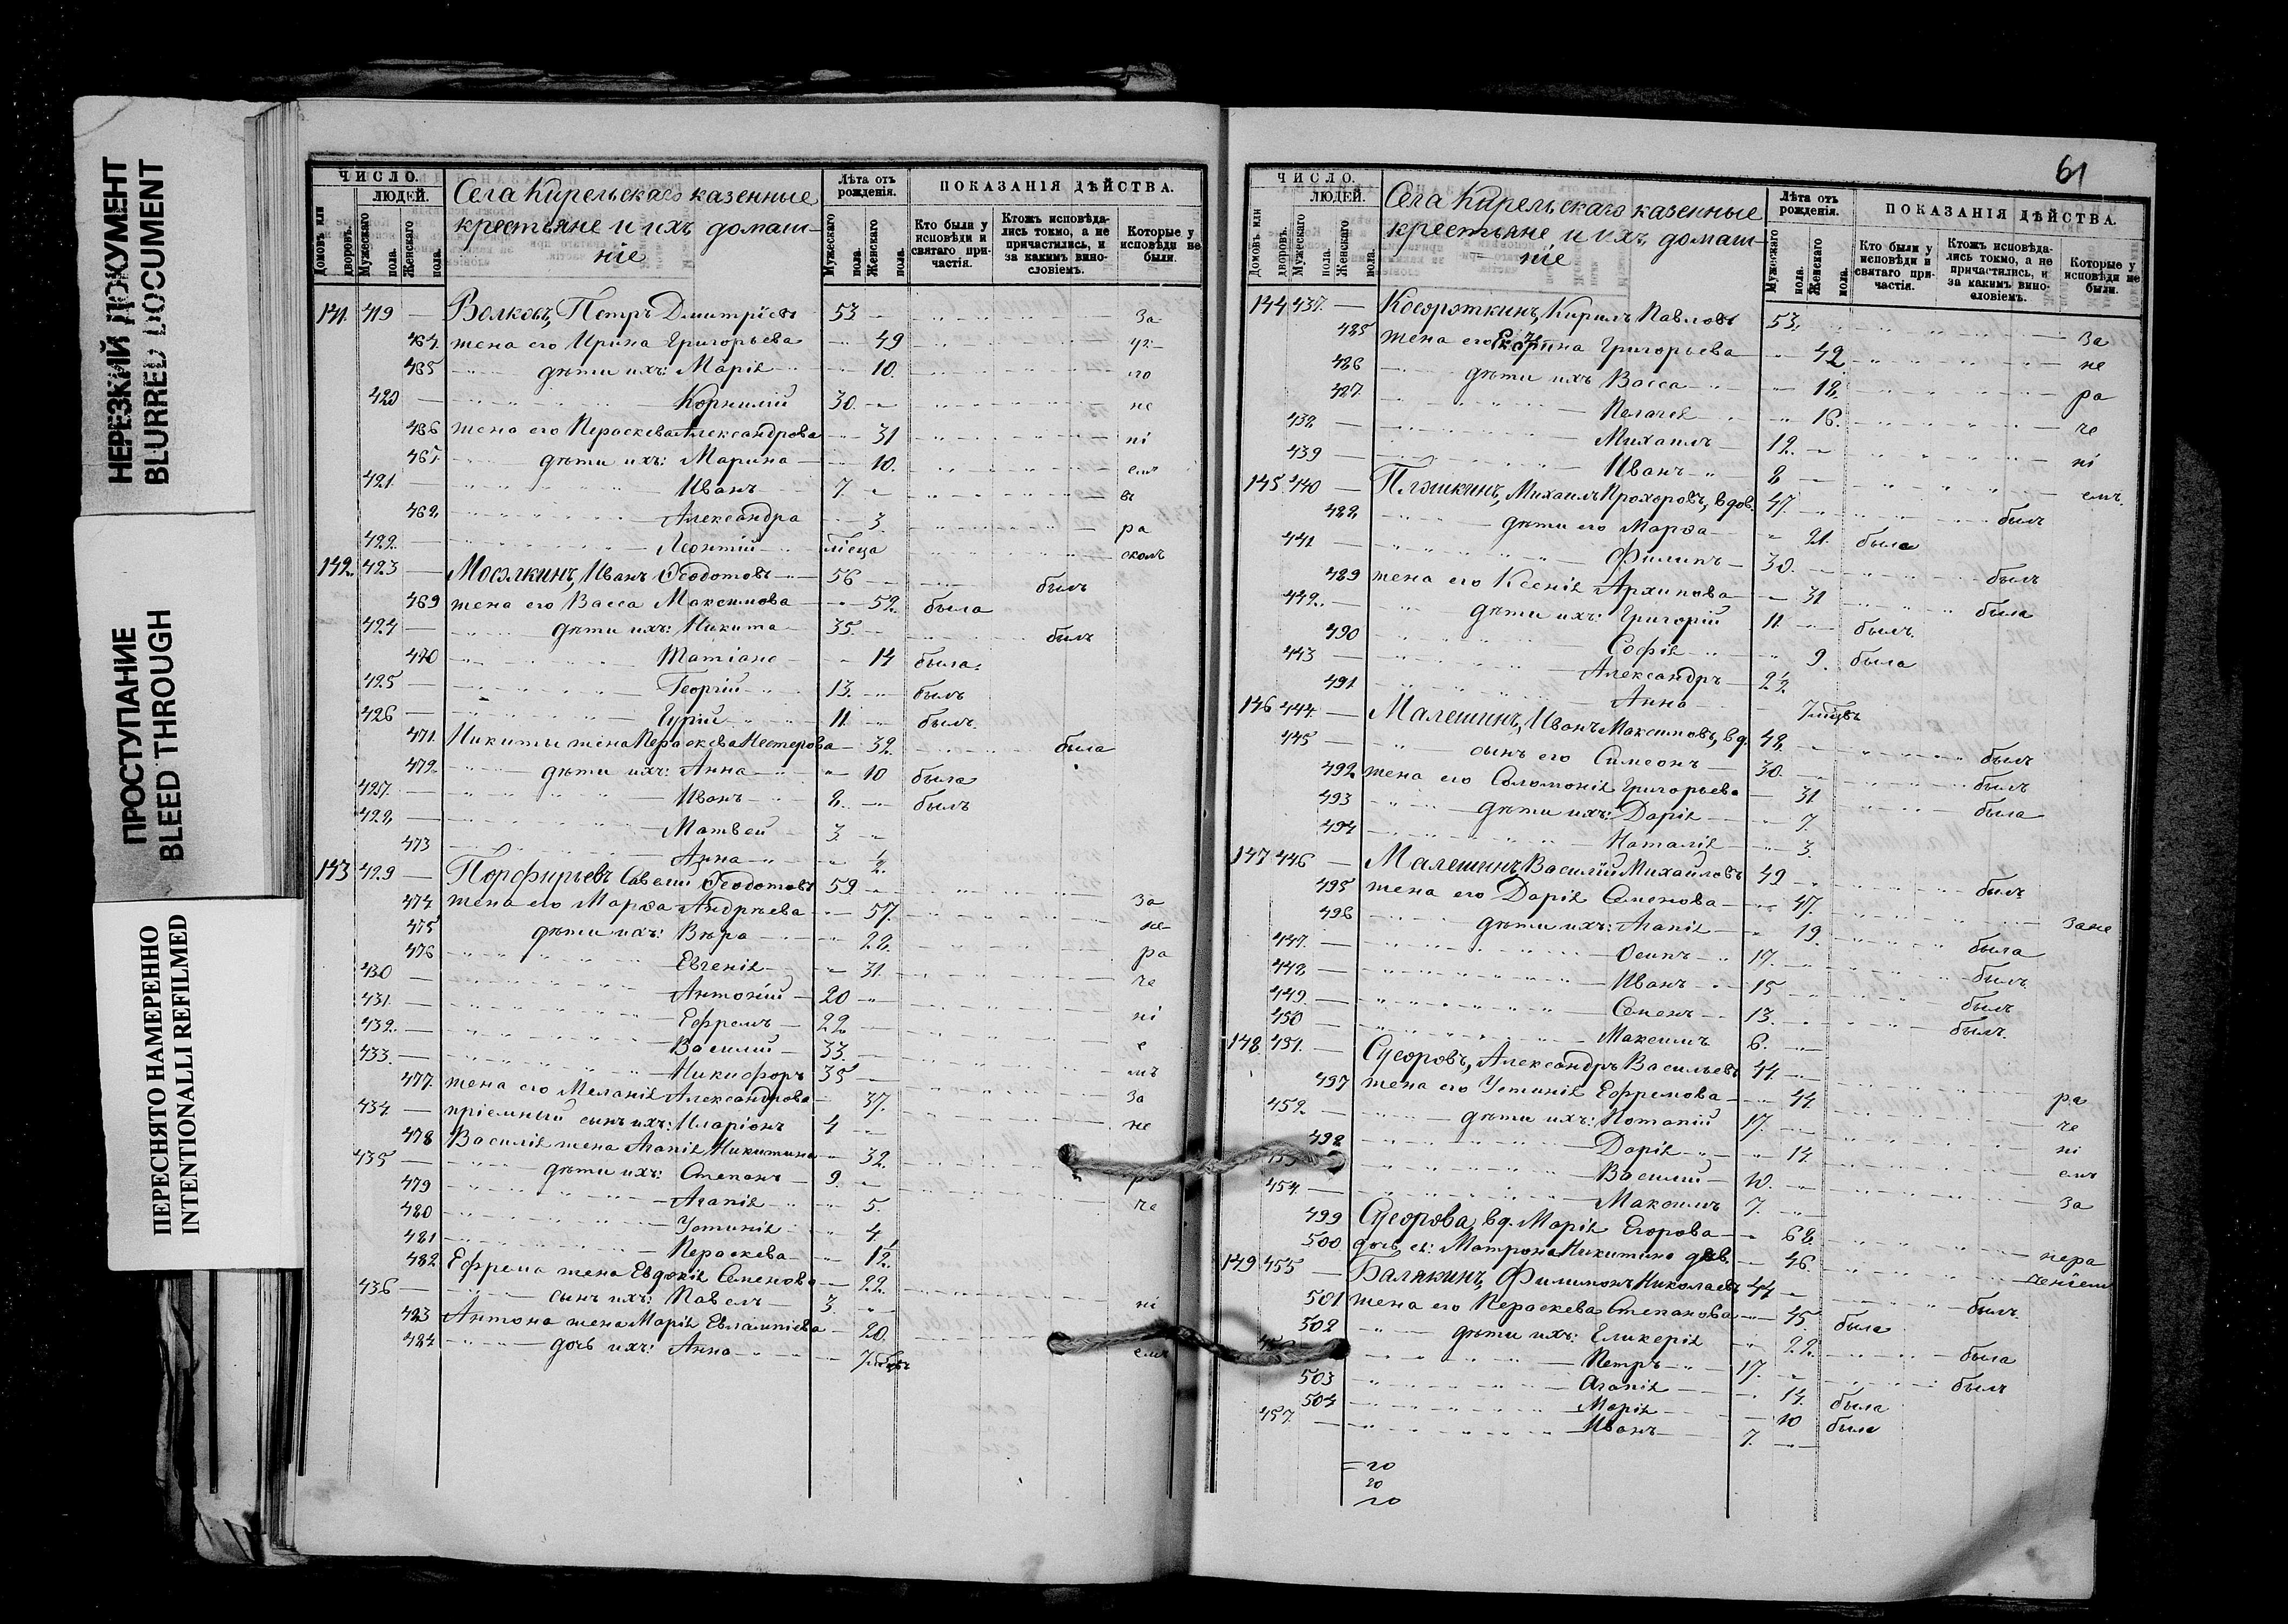 НЕРЕЗКИЙ ДОКУМЕНТ
BLURRED DOCUMENT
ПРОСТУПАНИЕ
BLEED THROUGH
ПЕРЕСНЯТО НАМЕРЕННО
INTENTIONALLI REFILMED
ЧИСЛО.
ЛЮДЕЙ.
Домовъ или дворовъ.
Мужескаго пола.
Женскаго пола.
Села Кирельскаго казенные
крестьяне и ихъ домаш-
ніе
Лѣта отъ рожденія.
Мужескаго пола.
Женскаго пола.
ПОКАЗАНІЯ ДѢЙСТВА.
Кто были у исповѣди и святаго причастія.
Ктожъ исповѣдались токмо, а не причастились, и за какимъ винословіемъ.
Которые у исповѣди не были.
141. 419 — Волковъ, Петръ Дмитріевъ 53 — за
464. жена его Ирина Григорьева — 49
465 дѣти ихъ: Марія 10.
420 — Корнилій 30. не
466 жена его Пераскева Александрова 31 ні
467. дѣти ихъ: Марина 10. емъ
421. — Иванъ 7 въ
468. Александра 3. ра
422. — Леонтій
142. 423 — Мосякинъ, Иванъ Ѳеодотовъ 56 былъ
469 жена его Васса Максимова 52. была
424 — дѣти ихъ: Никита 35. былъ
470 Татіана 14 была.
425 — Георгій 13. былъ
426 — Гурій 11 былъ
471. Никиты жена Пераскева Нестерова 32. была
472. дѣти ихъ: Анна 10 была
427. — Иванъ 8. былъ
428. — Матвей 3
473 Анна ½
143 429 — Порфирьевъ Савелій Ѳеодотовъ 59 за
474. жена его Марѳа Андрѣева 57. не
475 дѣти ихъ: Вѣра 28. ра
476 Евгенія 31. че
430 — Антоній 20 ні
431. — Ефремъ 22. е
432. — Василій 33. мъ
433. — Никифоръ 35 за
477. жена его Меланія Александрова 37. не
434. — пріемный сынъ ихъ: Иларіонъ 4
478 Василія жена Агапія Никитина 32. ра
435 — дѣти ихъ: Степанъ 9. че
479 Агапія 5.
480 Устинія 4
481 Пераскева 1½
482 Ефрема жена Евдокія Семенова 22. ні
436 — сынъ ихъ: Павелъ 3.
483 Антона жена Марія Евлампіева 20. емъ
484 дочь ихъ: Анна
61
ЧИСЛО.
ЛЮДЕЙ.
Домовъ или дворовъ.
Мужескаго пола.
Женскаго пола.
Села Кирельскаго казенные
крестьяне и ихъ домаш-
ніе
Лѣта отъ рожденія.
Мужескаго пола.
Женскаго пола.
ПОКАЗАНІЯ ДѢЙСТВА.
Кто были у исповѣди и святаго причастія.
Ктожъ исповѣдались токмо, а не причастились, и за какимъ винословіемъ.
Которые у исповѣди не были.
144 437. — Кирилъ Павловъ 53. за
485 жена его Григорьева 42 не
486 дѣти ихъ Васса 18. ра
487. Пелагея 16. че
438. — Михаилъ 12. ні
439 — Иванъ 8 емъ.
145 440 — Плэшкинъ, Михаилъ Прохоровъ, вдов. 47. былъ
488. дѣти его Марѳа 21. была
441 — Филипъ 30. былъ
489 жена его Ксенія Архипова 31 была
442. — дѣти ихъ: Григорій 11 былъ.
490 Софія 9. была
443 — Александръ 2½
491 Анна 7 мѣцвъ
146 444. — Малешинъ, Иванъ Максимовъ, вд. 48. былъ
445 — сынъ его Симеонъ 30. былъ
492. жена его Соломонія Григорьева 31 была
493 дѣти ихъ: Дарія 7.
494 Наталія 3.
147 446 — Малешинъ, Василій Михайловъ 49 былъ
495 жена его Дарія Семенова 47. зане
496 дѣти ихъ: Агапія 19. была
447. — Осипъ 17. былъ
448 — Иванъ 15 былъ
449. — Семенъ 13. былъ.
450 — Максимъ 6.
148. 451. — Суворовъ, Александръ Васильевъ 44 ра
497 жена его Устинія Ефремова 44. че
452. — дѣти ихъ: Потапій 17. ні
498 Дарія 14. емъ
Василій 10. за
454. — Максимъ 7.
499 Суворова, вд. Марія Егорова 68. нера
500 дочь ея: Матрона Никитина дѣв. 46. ченіем
149 455 — Балякинъ, Филимонъ Николаевъ 44 былъ
501 жена его Пераскева Степанова 45 была
502 дѣти ихъ: Гликерія 22. была
Петръ 17. былъ
503 Агапія 14. была
504 Марія 10 была
457. — Иванъ 7.
20
20
20